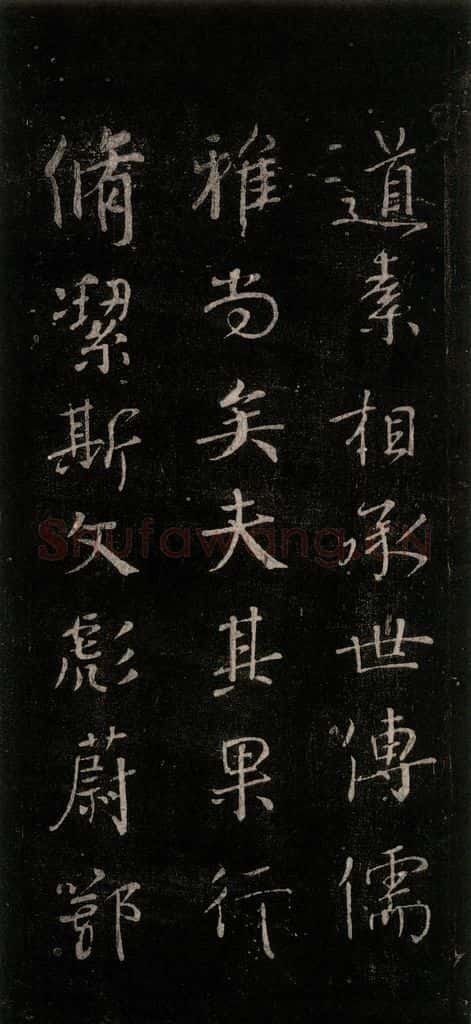 道素相承世傳儒
雅尚矣夫其果行
脩㓗斯文彪蔚鄂
Shufawang.CN